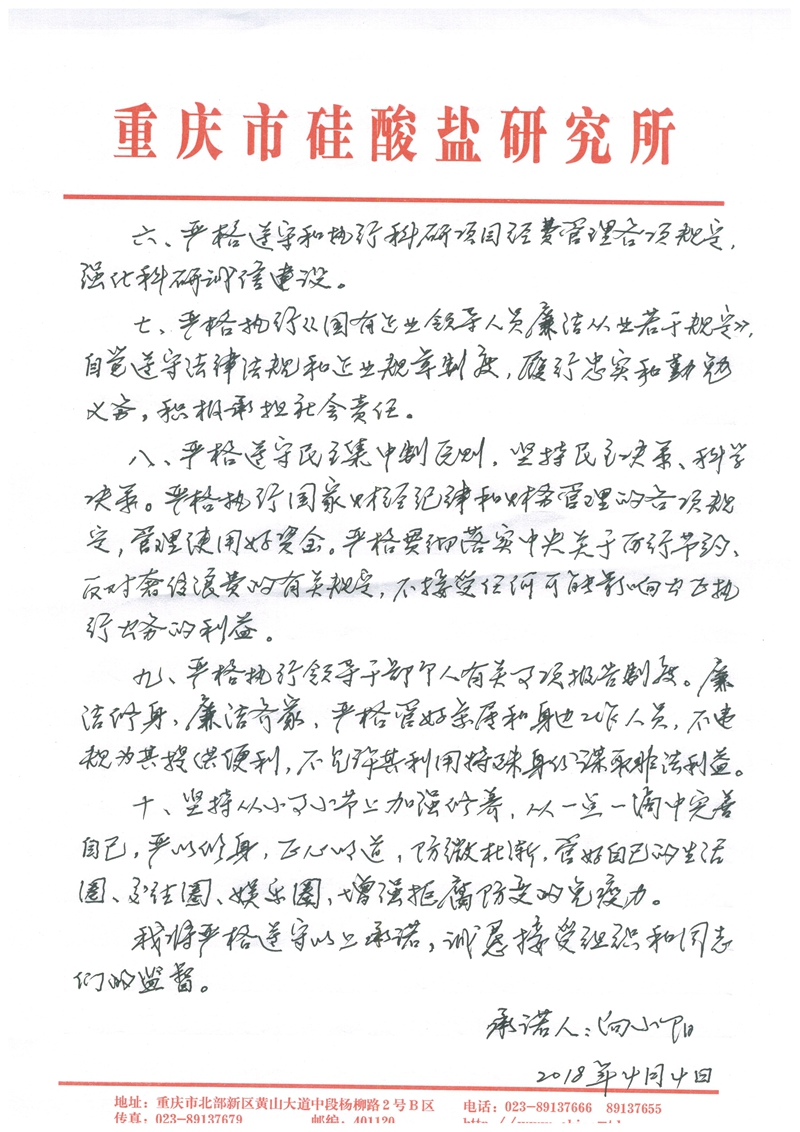 重庆市硅酸盐研究所
六、严格遵守和执行科研项目经费管理各项规定，
强化科研诚信建设。
七、严格执行《国有企业领导人员廉洁从业若干规定》，
自觉遵守法律法规和企业规章制度，履行忠实和勤勉
义务，积极承担社会责任。
八、严格遵守民主集中制原则，坚持民主决策、科学
决策。严格执行国家财经纪律和财务管理的各项规
定，管理使用好资金。严格贯彻落实中央关于厉行节约、
反对奢侈浪费的有关规定，不接受任何可能影响公正执
行公务的利益。
九、严格执行领导干部个人有关事项报告制度。廉
洁修身，廉洁齐家，严格管好亲属和身边工作人员，不违
规为其提供便利，不允许其利用特殊身份谋取非法利益。
十、坚持从小事小节上加强修养，从一点一滴中完善
自己，严以修身，正心明道，防微杜渐，管好自己的生活
圈、交往圈、娱乐圈，增强拒腐防变的免疫力。
我将严格遵守以上承诺，诚恳接受组织和同志
们的监督。
承诺人：向小阳
2018年4月4日
地址：重庆市北部新区黄山大道中段杨柳路2号B区 电话：023-89137666 89137655
传真：023-89137679 邮编：401120